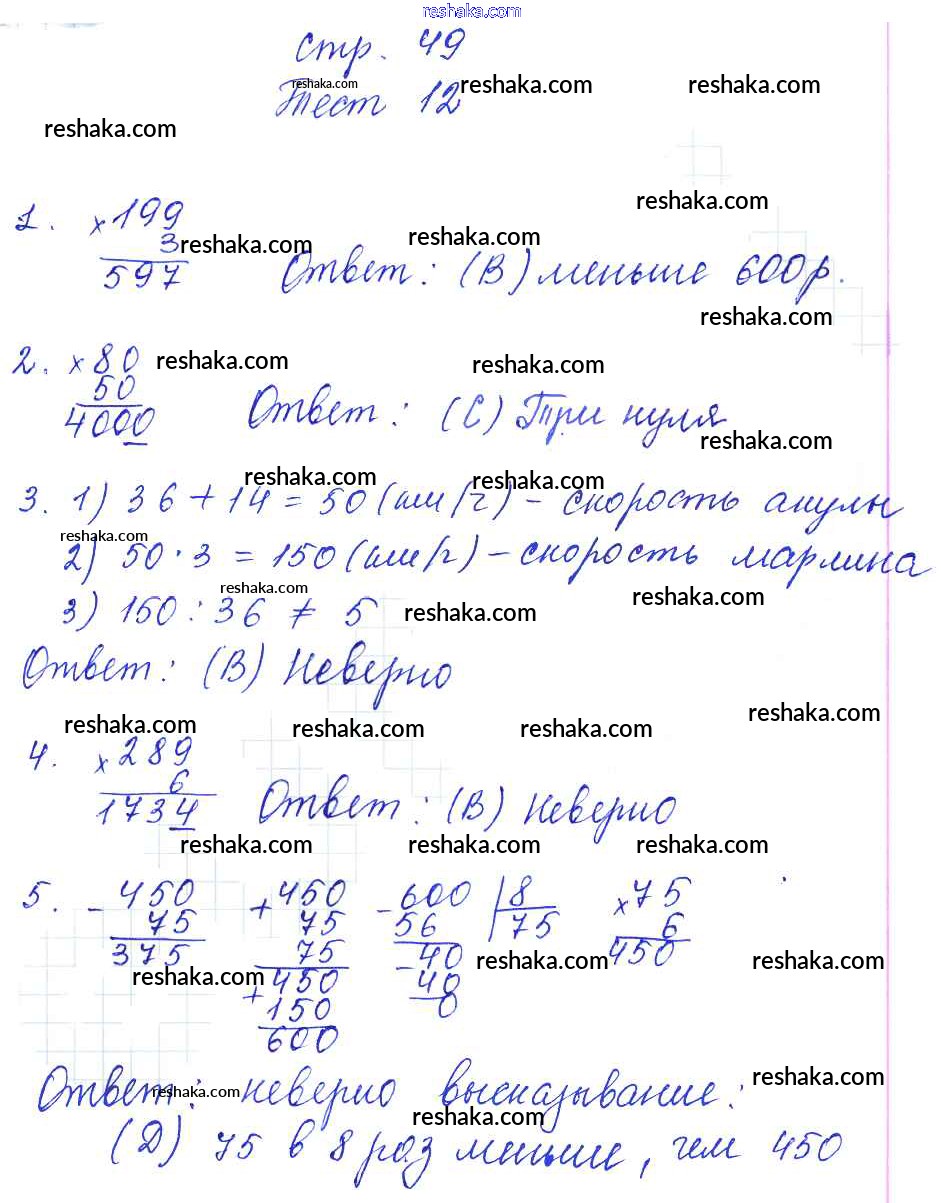 reshaka.com
стр. 49
reshaka.com reshaka.com reshaka.com
Тест 12
reshaka.com
reshaka.com
1. × 199
3 reshaka.com reshaka.com
597 Ответ: (В) меньше 600р.
reshaka.com
2. × 80 reshaka.com reshaka.com
50
4000 Ответ: (С) Три нуля
reshaka.com
reshaka.com reshaka.com
3. 1) 36 + 14 = 50 (км/ч) - скорость акулы
reshaka.com
2) 50 · 3 = 150 (км/ч) - скорость марлина
reshaka.com reshaka.com
3) 150 : 36 ≠ 5 reshaka.com
Ответ: (В) Неверно
reshaka.com reshaka.com reshaka.com reshaka.com
4. × 289
6
1734 Ответ: (В) Неверно
reshaka.com reshaka.com reshaka.com
5. - 450 + 450 - 600 | 8 × 75
75 75 56 75 6
375 75 - 40 450
reshaka.com reshaka.com reshaka.com
+ 450 40
150 0
600
reshaka.com reshaka.com
Ответ: неверно высказывание:
reshaka.com
(D) 75 в 8 раз меньше, чем 450